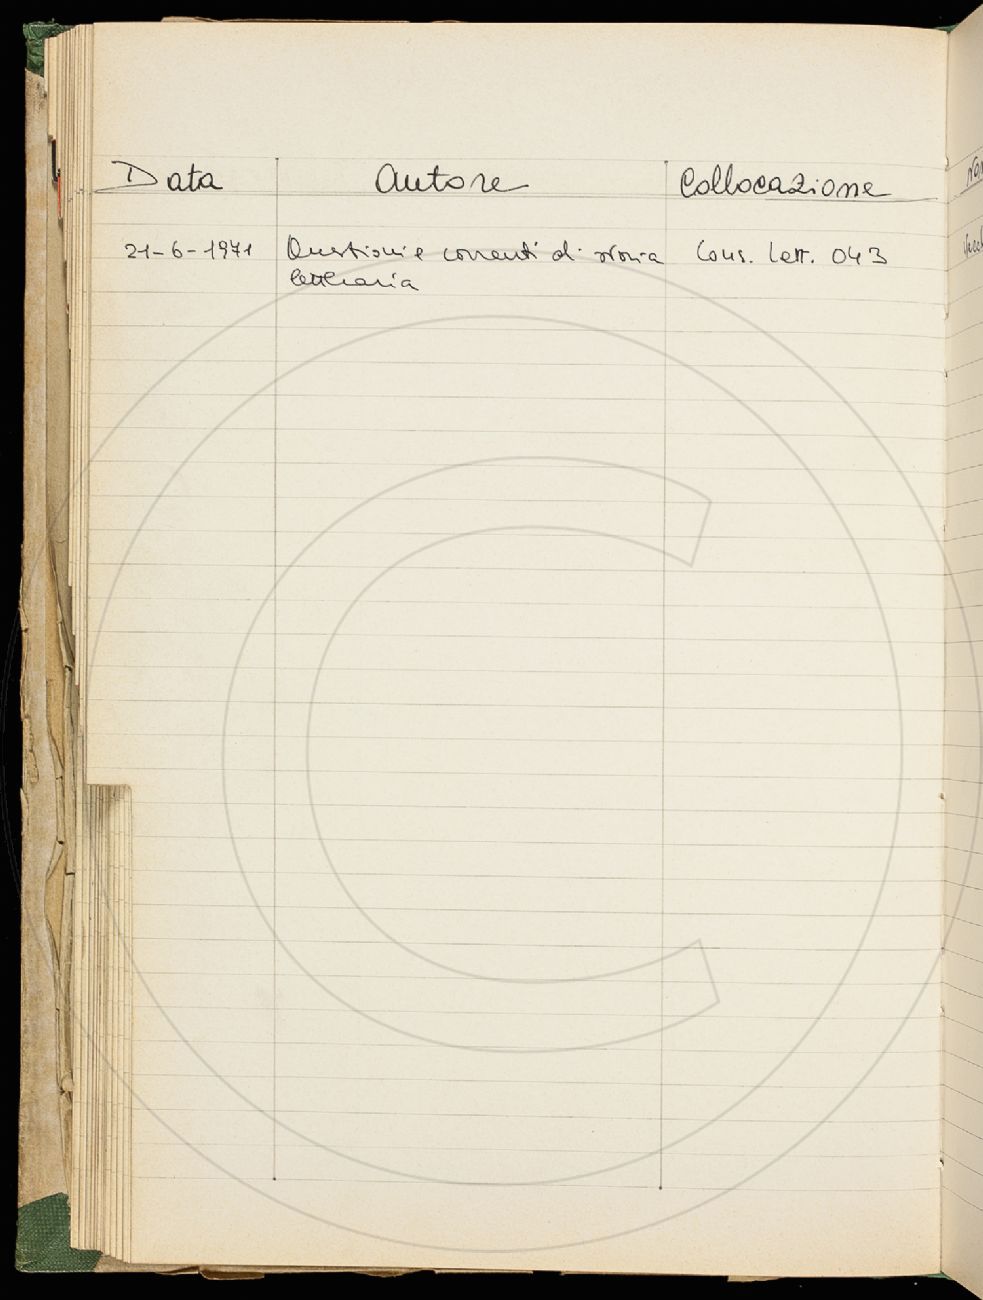 Data Autore Collocazione
21-6-1971 Questioni e correnti di storia Cons. Lett. 043
letteraria